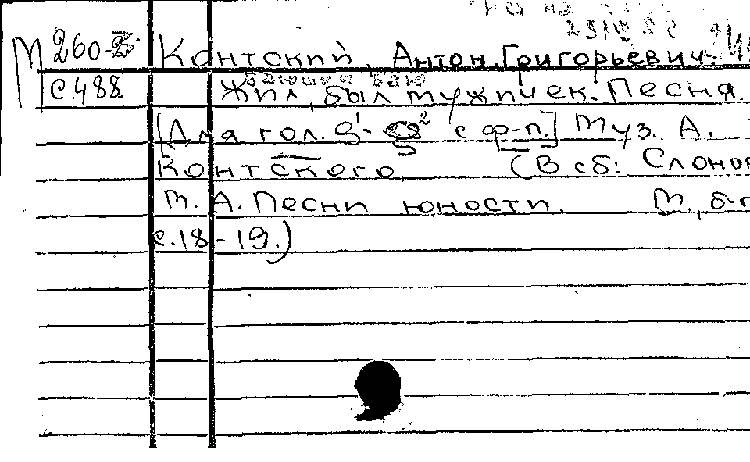 М 260-2 Контский, Антон Григорьевич.
С488 Жил, был мужичек. Песня.
[Для гол. g¹- g² с ф-п.] Муз. А.
Контского (В сб: Слонов
М. А. Песни юности. М., б-г
с.18-19.)